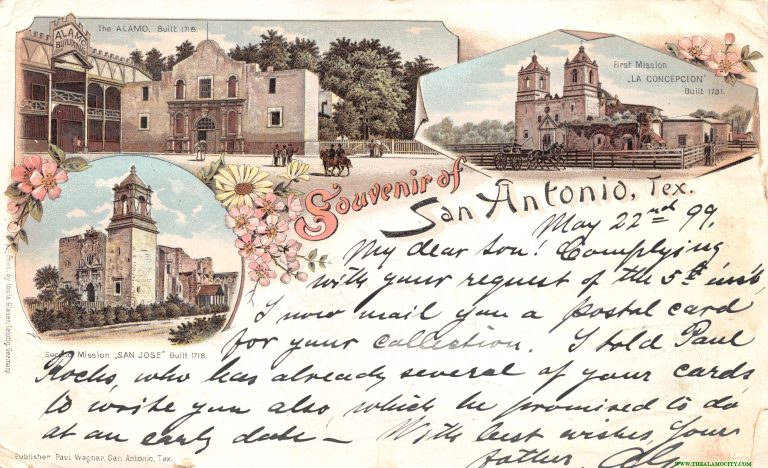 The ALAMO, Built 1718.
ALAMO
BUILDING
First Mission
„LA CONCEPCION"
Built 1731.
Souvenir of
San Antonio, Tex.
May 22nd 99.
My dear son! Complying
with your request of the 5th inst,
I now mail you a postal card
for your collection. I told Paul
Rochs, who has already several of your cards
to write you also, which he promised to do
at an early date — With best wishes, Your
father,
Second Mission „SAN JOSE" Built 1718.
Print. by Louis Glaser, Leipzig, Germany
Publisher Paul Wagner, San Antonio, Tex.
WWW.THEALAMOCITY.COM